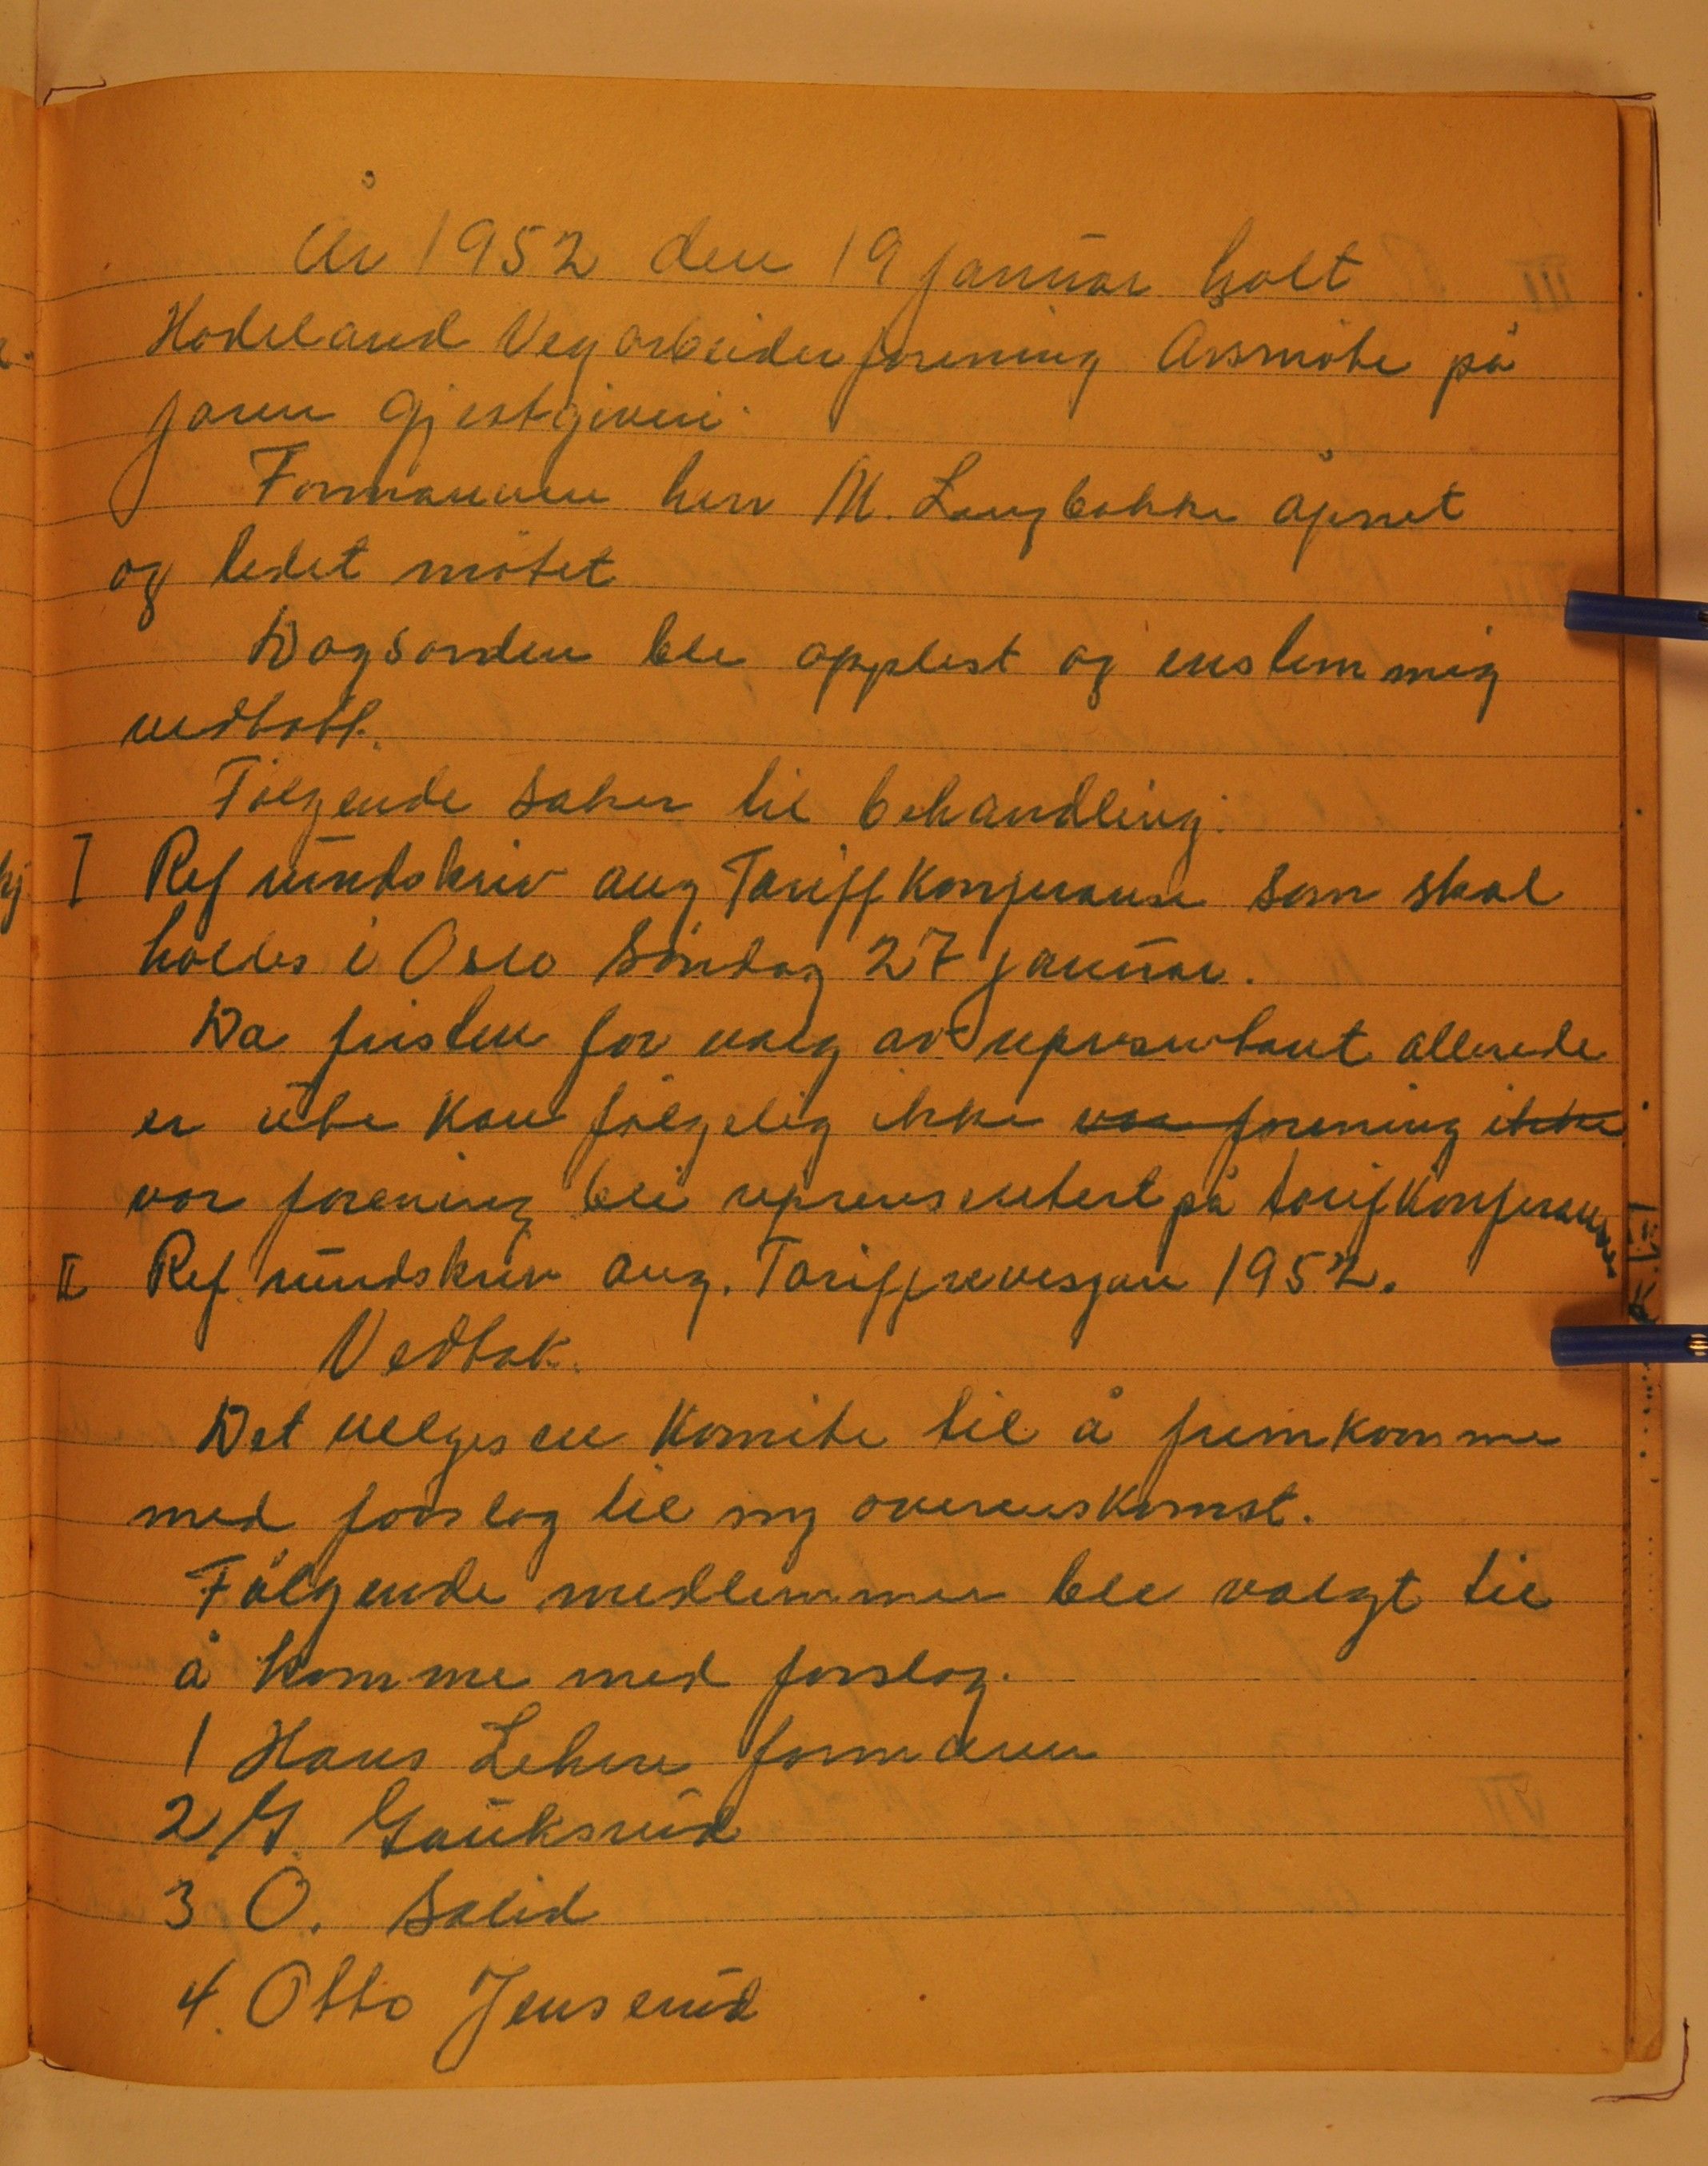 År 1952 den 19 januar holt
Hadeland Vegarbeiderforening Årsmöte på
Jaren Gjestgiveri.
Formannen herr M. Langbakke åpnet
og ledet mötet
Dagsorden ble opplest og enstemmig
vedtatt.
Fölgende saker til behandling:
I Ref rundskriv ang Tariffkonferanse som skal
holdes i Oslo Söndag 27 januar.
Da fristen for valg av representant allerede
er ute kan fölgelig ikke vor forening ikke
vor forening bli representert på tarifkonferansen
II Ref. rundskriv ang. Tariffrevisjon 1952.
Vedtak.
Det velges en Komite til å fremkomme
med forslag til ny overenskomst.
Fölgende medlemmer ble valgt til
å komme med forslag.
1 Hans Lehne formann
2 G. Gauksrud
3 O. Solid
4. Otto Jenserud